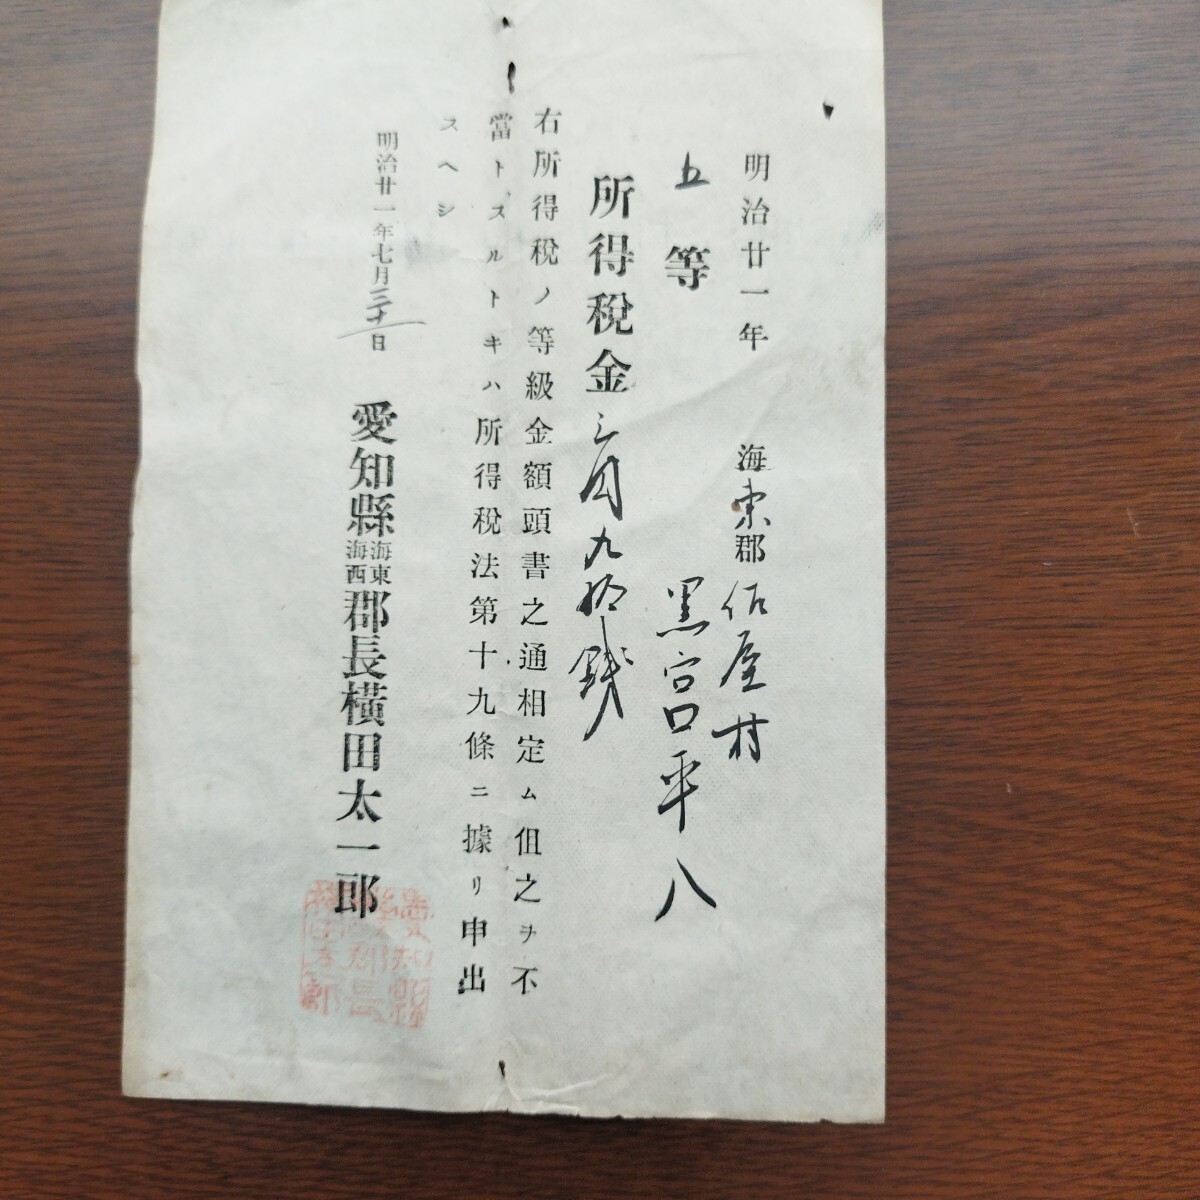 明治廿一年 海東郡佐屋村
五等 黒宮平八
所得税金三円九拾銭
右所得税ノ等級金額頭書之通相定ム但之ヲ不
當トスルトキハ所得税法第十九條ニ據リ申出
スヘシ
明治廿一年七月三十日
愛知縣海東海西郡長横田太一郎